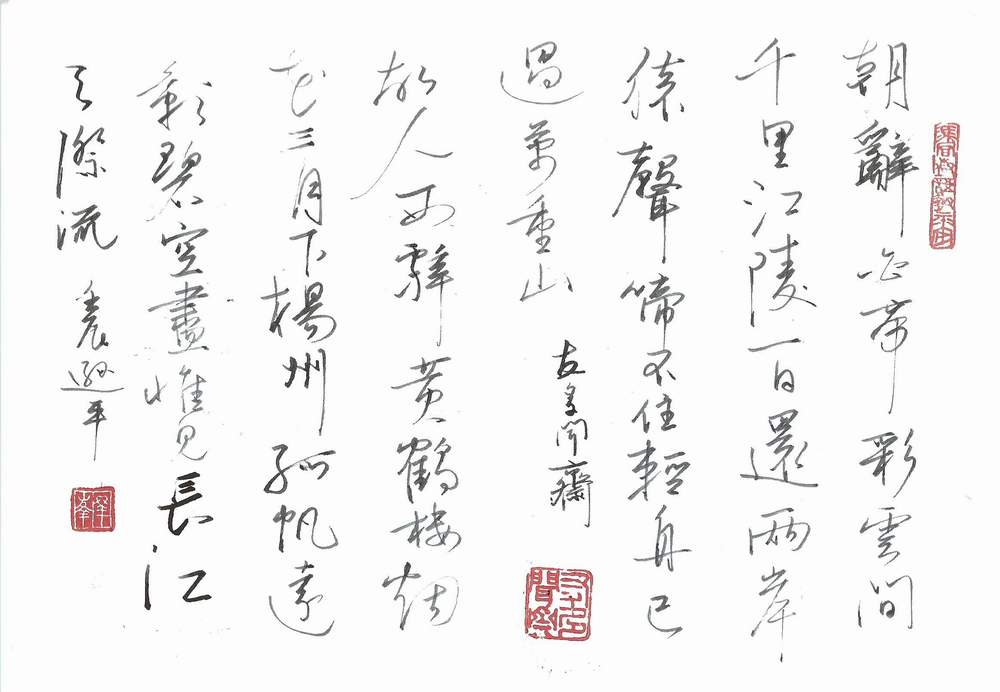 朝辭白帝彩雲間
千里江陵一日還兩岸
猿聲啼不住輕舟已
過萬重山
友多聞齋
友多聞齋
故人西辭黃鶴樓烟
花三月下楊州孤帆遠
影碧空盡惟見長江
天際流